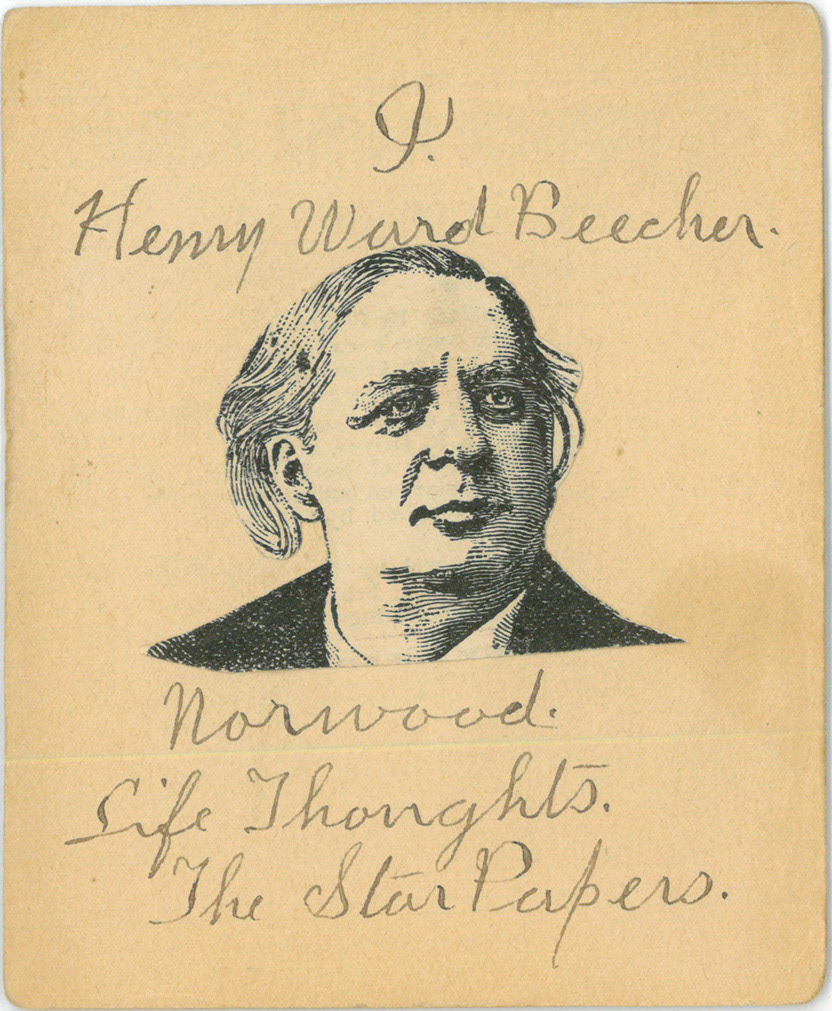 I.
Henry Ward Beecher.
Norwood.
Life Thoughts.
The Star Papers.